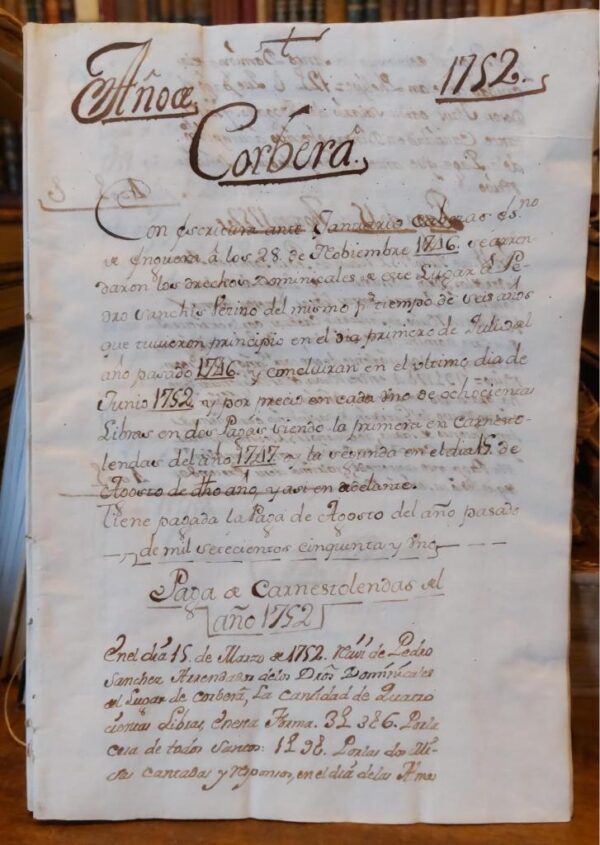 Año de 1752
Corbera
Con escritura ante Januario Cabezas esno
de enguera á los 28 de Nobiembre 1746. se arren-
daron los drechos Dominicales de este Lugar á Pe-
dro Sanchis Vezino del mismo pr tiempo de seis años
que tuuieron principio en el dia primero de Julio del
año pasado 1746 y concluiran en el vltimo dia de
Junio 1752 y por precio en cada vno de ochocientas
Libras en dos Pagas siendo la primera en Carnesto-
lendas del año 1747 a la segunda en el dia 15 de
Agosto de dho año, y asi en adelante.
Tiene pagada la Paga de Agosto del año pasado
de mil setecientos cinquenta y vno
Paga de Carnestolendas del
año 1752
En el dia 15 de Marzo de 1752. Reuí de Pedro
Sanchez Arrendador de los Dros Dominicales
del Lugar de Corbera, La cantidad de Quatro
cientas Libras, en esta Forma. 3L 3S6. Por la
cera de todos santos: 1L 9S. Por las dos Mi-
sas cantadas y responsos, en el dia de las Almas